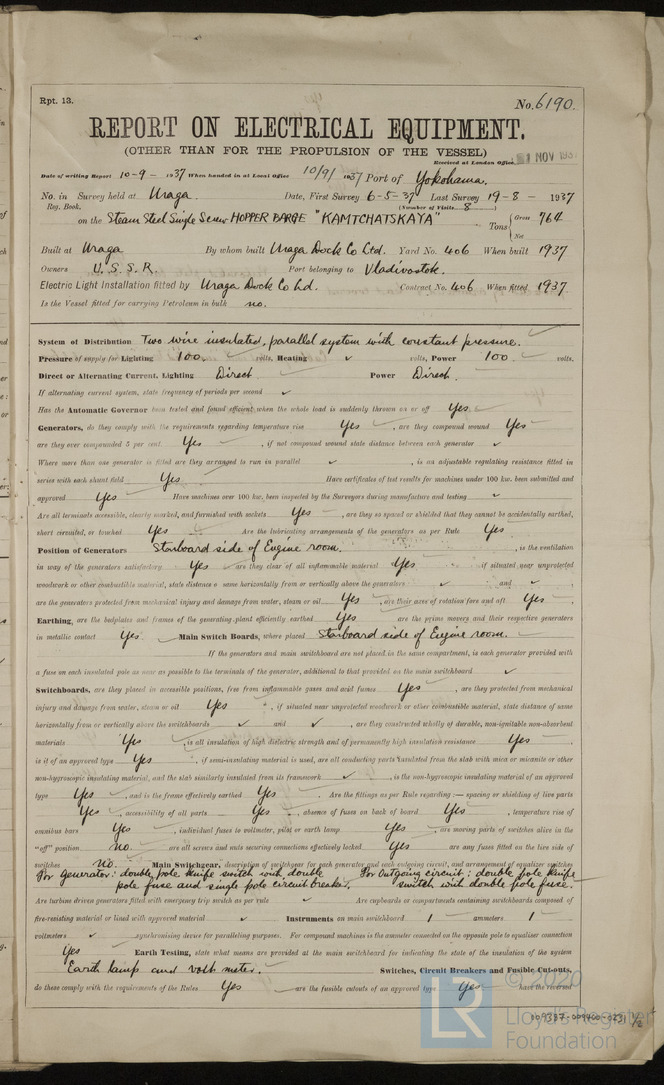 Rpt. 13.
No. 6190.
REPORT ON ELECTRICAL EQUIPMENT.
(OTHER THAN FOR THE PROPULSION OF THE VESSEL)
Received at London Office 1 NOV 193
Date of writing Report 10-9- 1937 When handed in at Local Office 10/9/ 1937 Port of Yokohama.
No. in Survey held at Uraga. Date, First Survey 6-5-37 Last Survey 19-8- 1937
Reg. Book. (Number of Visits 8)
on the Steam Steel Single Screw HOPPER BARGE "KAMTCHATSKAYA" Tons { Gross 764
Net
Built at Uraga By whom built Uraga Dock Co Ltd. Yard No. 406 When built 1937
Owners U.S.S.R. Port belonging to Vladivostok.
Electric Light Installation fitted by Uraga Dock Co Ltd. Contract No. 406 When fitted 1937
Is the Vessel fitted for carrying Petroleum in bulk no.
System of Distribution Two wire insulated, parallel system with constant pressure.
Pressure of supply for Lighting 100 volts, Heating ✓ volts, Power 100 volts.
Direct or Alternating Current, Lighting Direct Power Direct.
If alternating current system, state frequency of periods per second ✓
Has the Automatic Governor been tested and found efficient when the whole load is suddenly thrown on or off Yes.
Generators, do they comply with the requirements regarding temperature rise Yes, are they compound wound Yes
are they over compounded 5 per cent. Yes, if not compound wound state distance between each generator ✓
Where more than one generator is fitted are they arranged to run in parallel ✓, is an adjustable regulating resistance fitted in
series with each shunt field Yes Have certificates of test results for machines under 100 kw. been submitted and
approved Yes Have machines over 100 kw. been inspected by the Surveyors during manufacture and testing ✓
Are all terminals accessible, clearly marked, and furnished with sockets Yes, are they so spaced or shielded that they cannot be accidentally earthed,
short circuited, or touched Yes Are the lubricating arrangements of the generators as per Rule Yes
Position of Generators Starboard side of Engine room., is the ventilation
in way of the generators satisfactory Yes are they clear of all inflammable material Yes if situated near unprotected
woodwork or other combustible material, state distance of same horizontally from or vertically above the generators ✓ and ✓,
are the generators protected from mechanical injury and damage from water, steam or oil Yes, are their axes of rotation fore and aft Yes,
Earthing, are the bedplates and frames of the generating plant efficiently earthed Yes are the prime movers and their respective generators
in metallic contact Yes. Main Switch Boards, where placed Starboard side of Engine room.
If the generators and main switchboard are not placed in the same compartment, is each generator provided with
a fuse on each insulated pole as near as possible to the terminals of the generator, additional to that provided on the main switchboard ✓
Switchboards, are they placed in accessible positions, free from inflammable gases and acid fumes Yes, are they protected from mechanical
injury and damage from water, steam or oil Yes, if situated near unprotected woodwork or other combustible material, state distance of same
horizontally from or vertically above the switchboards ✓ and ✓, are they constructed wholly of durable, non-ignitable non-absorbent
materials Yes, is all insulation of high dielectric strength and of permanently high insulation resistance Yes,
is it of an approved type Yes, if semi-insulating material is used, are all conducting parts insulated from the slab with mica or micanite or other
non-hygroscopic insulating material, and the slab similarly insulated from its framework ✓, is the non-hygroscopic insulating material of an approved
type Yes, and is the frame effectively earthed Yes. Are the fittings as per Rule regarding:— spacing or shielding of live parts
Yes, accessibility of all parts Yes, absence of fuses on back of board Yes, temperature rise of
omnibus bars Yes, individual fuses to voltmeter, pilot or earth lamp Yes, are moving parts of switches alive in the
"off" position no. are all screws and nuts securing connections effectively locked Yes are any fuses fitted on the live side of
switches no. Main Switchgear, description of switchgear for each generator and each outgoing circuit, and arrangement of equalizer switches
For Generator: double pole knife switch with double For Outgoing circuit: double pole knife
pole fuse and single pole circuit breaker. switch with double pole fuse.
Are turbine driven generators fitted with emergency trip switch as per rule ✓ Are cupboards or compartments containing switchboards composed of
fire-resisting material or lined with approved material ✓ Instruments on main switchboard 1 ammeters 1
voltmeters ✓ synchronising device for paralleling purposes. For compound machines is the ammeter connected on the opposite pole to equaliser connection
Yes Earth Testing, state what means are provided at the main switchboard for indicating the state of the insulation of the system
Earth lamp and volt meter. Switches, Circuit Breakers and Fusible Cut-outs,
do these comply with the requirements of the Rules Yes are the fusible cutouts of an approved type Yes have the reversed
© 2020
Lloyd's Register
Foundation
009387-009400-0231 1/2